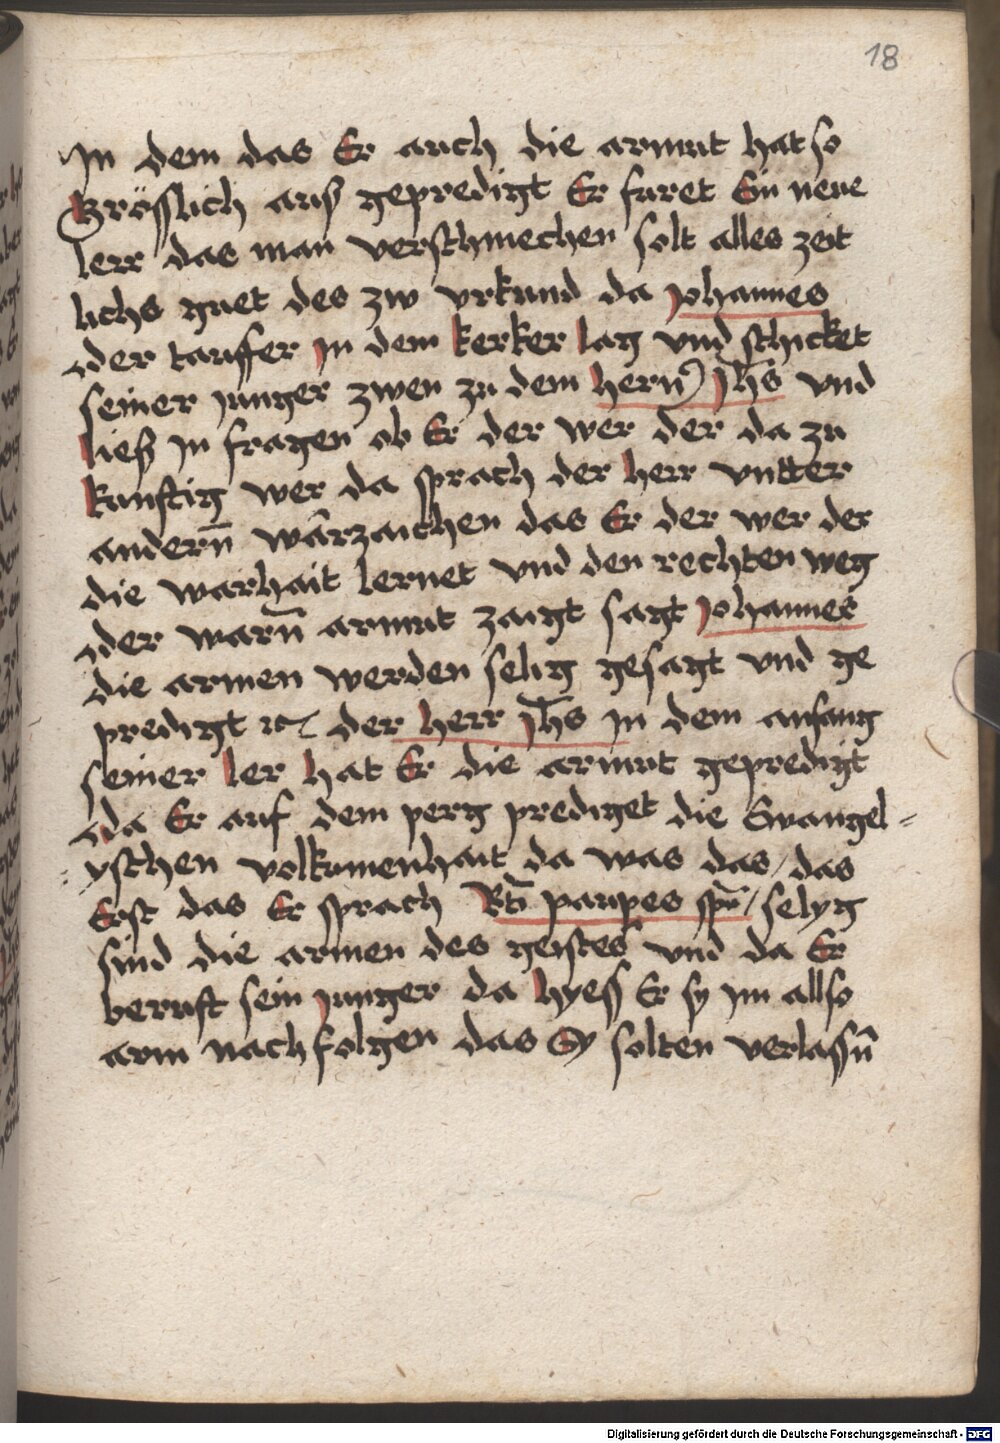 18
In dem das Er auch die armut hat so
Grösslich auß gepredigt Er furet Ein neue
lerr das man verschmechen solt alles zeit
lichs guet des zw vrkund da johannes
der tauffer jn dem kerker lag vnd schicket
seiner junger zwen zu dem hern̄ jh̄s vnd
ließ jn fragen ob Er der wer der da zu
kunftig wer da sprach der herr vntter
andern̄ warzaichen das Er der wer der
die warhait lernet vnd den rechten weg
der warn̄ armut zaigt sagt johannes
die armen werden selig gesagt vnd ge
predigt ⁊c der herr jh̄s jn dem anfang
seiner ler hat Er die armut gepredigt
da Er auf dem perg prediget die Ewangel=
yschen volkumenhait da was das / das
Erst das Er sprach Bt̄i paupes spū / selyg
sind die armen des geistes vnd da Er
beruft sein junger da hyess Er sy jm allso
arm nachfolgen das Sy solten verlassn̄
Digitalisierung gefördert durch die Deutsche Forschungsgemeinschaft - DFG